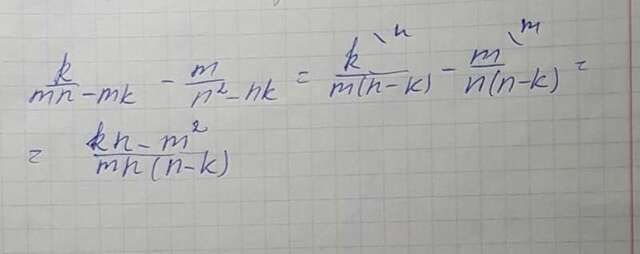 k/(mn-mk) - m/(n²-nk) = k\n/(m(n-k)) - m\m/(n(n-k)) =
= (kn-m²)/(mn(n-k))